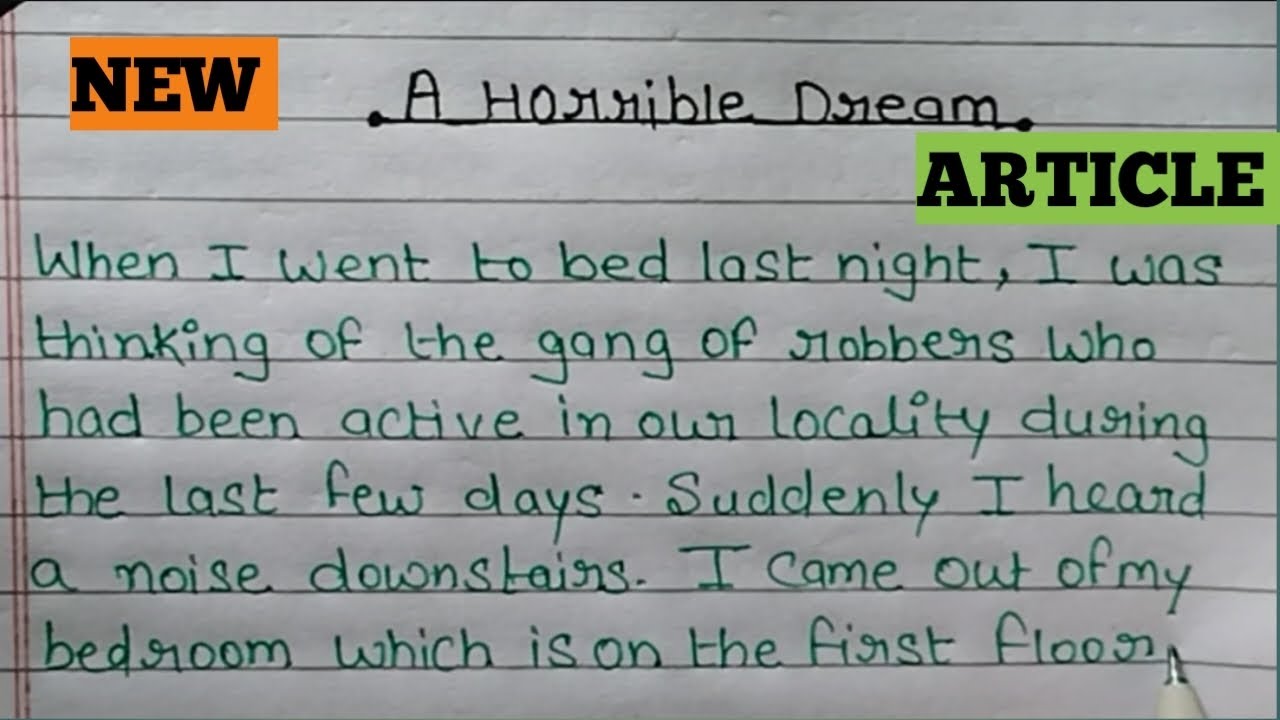 NEW
A Horrible Dream.
ARTICLE
When I went to bed last night, I was
thinking of the gang of robbers who
had been active in our locality during
the last few days. Suddenly I heard
a noise downstairs. I came out of my
bedroom which is on the first floor,